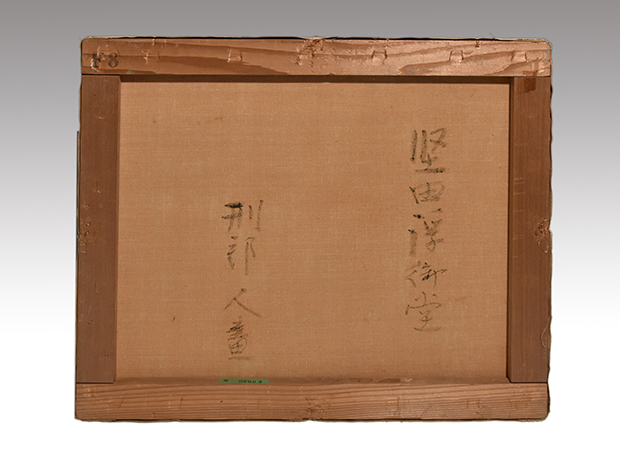 堅田浮御堂
刑部人畫
F8